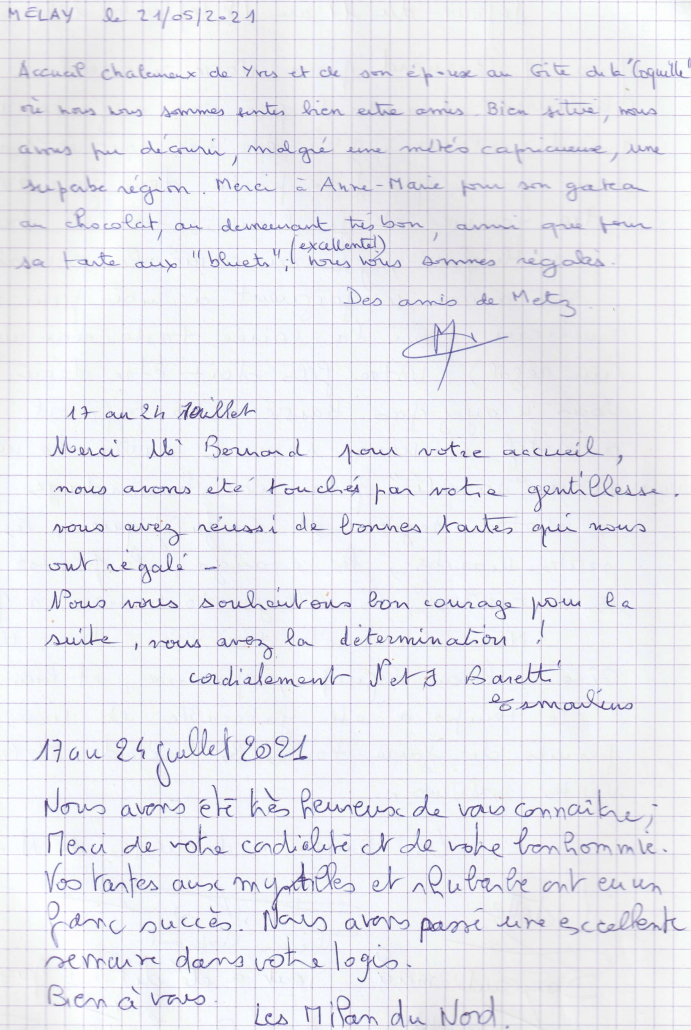 MELAY le 21/05/2021
Accueil chaleureux de Yves et de son épouse au Gîte de la "Coquille"
où nous nous sommes sentis bien entre amis. Bien situé, nous
avons pu découvrir, malgré une météo capricieuse, une
superbe région. Merci à Anne-Marie pour son gateau
au chocolat, au demeurant très bon, ainsi que pour
sa tarte aux "bluets", (excellente!) nous nous sommes régalés.
Des amis de Metz
17 au 24 Juillet
Merci Mr Bernard pour votre accueil,
nous avons été touchés par votre gentillesse.
vous avez réussi de bonnes tartes qui nous
ont régalé -
Nous vous souhaitons bon courage pour la
suite, vous avez la détermination !
cordialement et J Baretti
17 au 24 juillet 2021
Nous avons été très heureux de vous connaître,
Merci de votre cordialité et de votre bonhommie.
Vos tartes aux myrtilles et rhubarbe ont eu un
franc succès. Nous avons passé une excellente
semaine dans votre logis.
Bien à vous.
Les Milan du Nord.